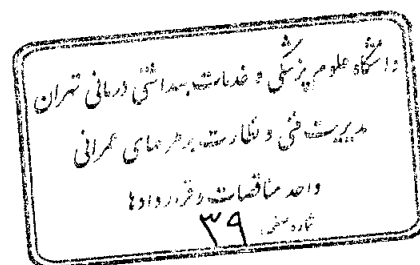 دانشگاه علوم پزشکی و خدمات بهداشتی درمانی تهران
مدیریت فنی و نظارت بر طرحهای عمرانی
واحد مناقصات و قراردادها
شماره صفحه: ۳۹